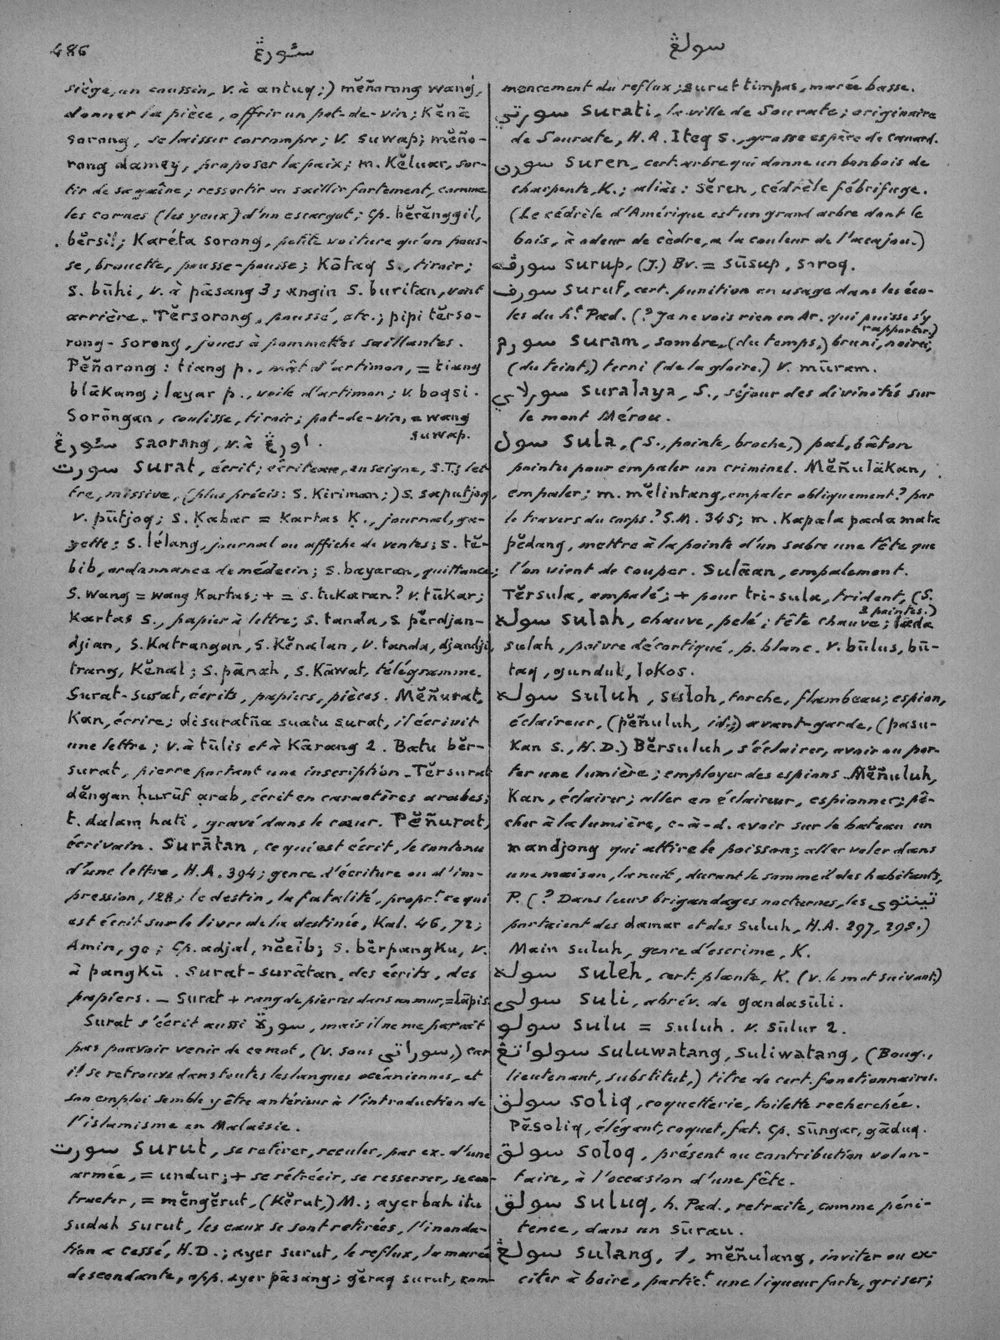 486
سئورڠ
سولڠ
siège, un coussin, v. à antuq;) mĕñorong wang,
donner la pièce, offrir un pot-de-vin; Kĕnā
sorong, se laisser corrompre; V. suwap; mĕño-
rong damey, proposer la paix; m. Kĕluar, sor-
tir de sa gaîne; ressortir ou saillir fortement, comme
les cornes (les yeux) d'un escargot; Cp. bĕrĕnggil,
bĕrsil; Karéta sorong, petite voiture qu'on pous-
se, brouette, pousse-pousse; Kōtaq S., tiroir;
S. būhi, v. à pāsang 3; angin S. buritan, vent
arrière. Tĕrsorong, poussé, etc.; pipi tĕrso-
rong-sorong, joues à pommettes saillantes.
Pĕñorong: tiang p., mât d'artimon, = tiang
blākang; layar p., voile d'artimon; v. boqsi.
Sorōngan, coulisse, tiroir; pot-de-vin, = wang
suwap.
سئورڠ saorang, v. à اورڠ.
سورت surat, écrit; écriteau, enseigne, S.T.; let-
tre, missive, (plus précis: S. Kiriman;) S. saputjoq,
v. pūtjoq; S. Kabar = Kartas K., journal, ga-
zette; S. lélang, journal ou affiche de ventes; S. tĕ-
bib, ordonnance de médecin; S. bayaran, quittance;
S. wang = wang Kartas; + = S. tukaran? v. tūkar;
Kartas S., papier à lettre; S. tanda, S. pĕrdjan-
djian, S. Katrangan, S. Kĕnalan, v. tanda, djandji,
trang, Kĕnal; S. pānah, S. Kāwat, télégramme.
Surat-surat, écrits, papiers, pièces. Mĕñurat,
Kan, écrire; disuratña suatu surat, il écrivit
une lettre; v. à tūlis et à Kārang 2. Batu bĕr-
surat, pierre portant une inscription. Tĕrsurat
dĕngan hurūf arab, écrit en caractères arabes;
t. dalam hati, gravé dans le cœur. Pĕñurat,
écrivain. Surātan, ce qui est écrit, le contenu
d'une lettre, H.A. 394; genre d'écriture ou d'im-
pression, 128; le destin, la fatalité, propr.t ce qui
est écrit sur le livre de la destinée, Kal. 46, 72;
Amin, 90; Cp. adjal, nĕcīb; S. bĕrpangKu, v.
à pangKū. Surat-surātan, des écrits, des
papiers. — Surat + rang de pierres dans un mur, = lāpis.
Surat s'écrit aussi سورة, mais il ne me parait
pas pouvoir venir de ce mot, (v. sous سوراتي,) car
il se retrouve dans toutes les langues océaniennes, et
son emploi semble y être antérieur à l'introduction de
l'islamisme en Malaisie.
سورت surut, se retirer, reculer, par ex. d'une
armée, = undur; + se rétrécir, se resserrer, se con-
tracter, = mĕngĕrut, (Kĕrut,) M.; ayer bah itu
sudah surut, les eaux se sont retirées, l'inonda-
tion a cessé, H.D.; ayer surut, le reflux, la marée
descendante, opp. ayer pāsang; gĕraq surut, com-
mencement du reflux; surut timpas, marée basse.
سورتي Surati, la ville de Sourate; originaire
de Sourate, H.A. Iteq S., grosse espèce de canard.
سورن suren, cert. arbre qui donne un bon bois de
charpente, K.; aliàs: sĕren, cédrèle fébrifuge.
(Le cédrèle d'Amérique est un grand arbre dont le
bois, à odeur de cèdre, a la couleur de l'acajou.)
سورڤ surup, (J.) Bv. = sūsup, soroq.
سورف suruf, cert. punition en usage dans les éco-
les du h.t Pad. (? Je ne vois rien en Ar. qui puisse s'y
rapporter.)
سورم suram, sombre, (du temps,) bruni, noirci,
(du teint,) terni (de la gloire.) V. mūram.
سورلاي suralaya, S., séjour des divinités sur
le mont Mérou.
سول sula, (S., pointe, broche,) pal, bâton
pointu pour empaler un criminel. Mĕñulākan,
empaler; m. mĕlintang, empaler obliquement? par
le travers du corps? S.M. 345; m. Kapala pada mata
pĕdang, mettre à la pointe d'un sabre une tête que
l'on vient de couper. Sulāan, empalement.
Tĕrsula, empalé; + pour tri-sula, trident, (S.
3 pointes.)
سوله sulah, chauve, pelé; tête chauve; lada
sulah, poivre décortiqué, p. blanc. V. būlus, bū-
taq, gundul, lokos.
سوله suluh, suloh, torche, flambeau; espion,
éclaireur, (pĕñuluh, id.;) avant-garde, (pasu-
Kan S., H.D.) Bĕrsuluh, s'éclairer, avoir ou por-
ter une lumière; employer des espions. Mĕñuluh,
Kan, éclairer; aller en éclaireur, espionner; pê-
cher à la lumière, c-à-d. avoir sur le bateau un
mandjong qui attire le poisson; aller voler dans
une maison, la nuit, durant le sommeil des habitants,
P. (? Dans leurs brigandages nocturnes, les
portaient des damar et des suluh, H.A. 297, 298.)
Main suluh, genre d'escrime, K.
سوله suleh, cert. plante, K. (v. le mot suivant.)
سولي suli, abrév. de gandasūli.
سولو sulu = suluh. v. sūlur 2.
سولواتڠ suluwatang, suliwatang, (Boug.,
lieutenant, substitut,) titre de cert. fonctionnaires.
سولق soliq, coquetterie, toilette recherchée.
Pĕsoliq, élégant, coquet, fat. Cp. sūngar, gāduq.
سولق soloq, présent ou contribution volon-
taire, à l'occasion d'une fête.
سولق suluq, h. Pad., retraite, comme péni-
tence, dans un sūrau.
سولڠ sulang, 1, mĕñulang, inviter ou ex-
citer à boire, partic.t une liqueur forte, griser;